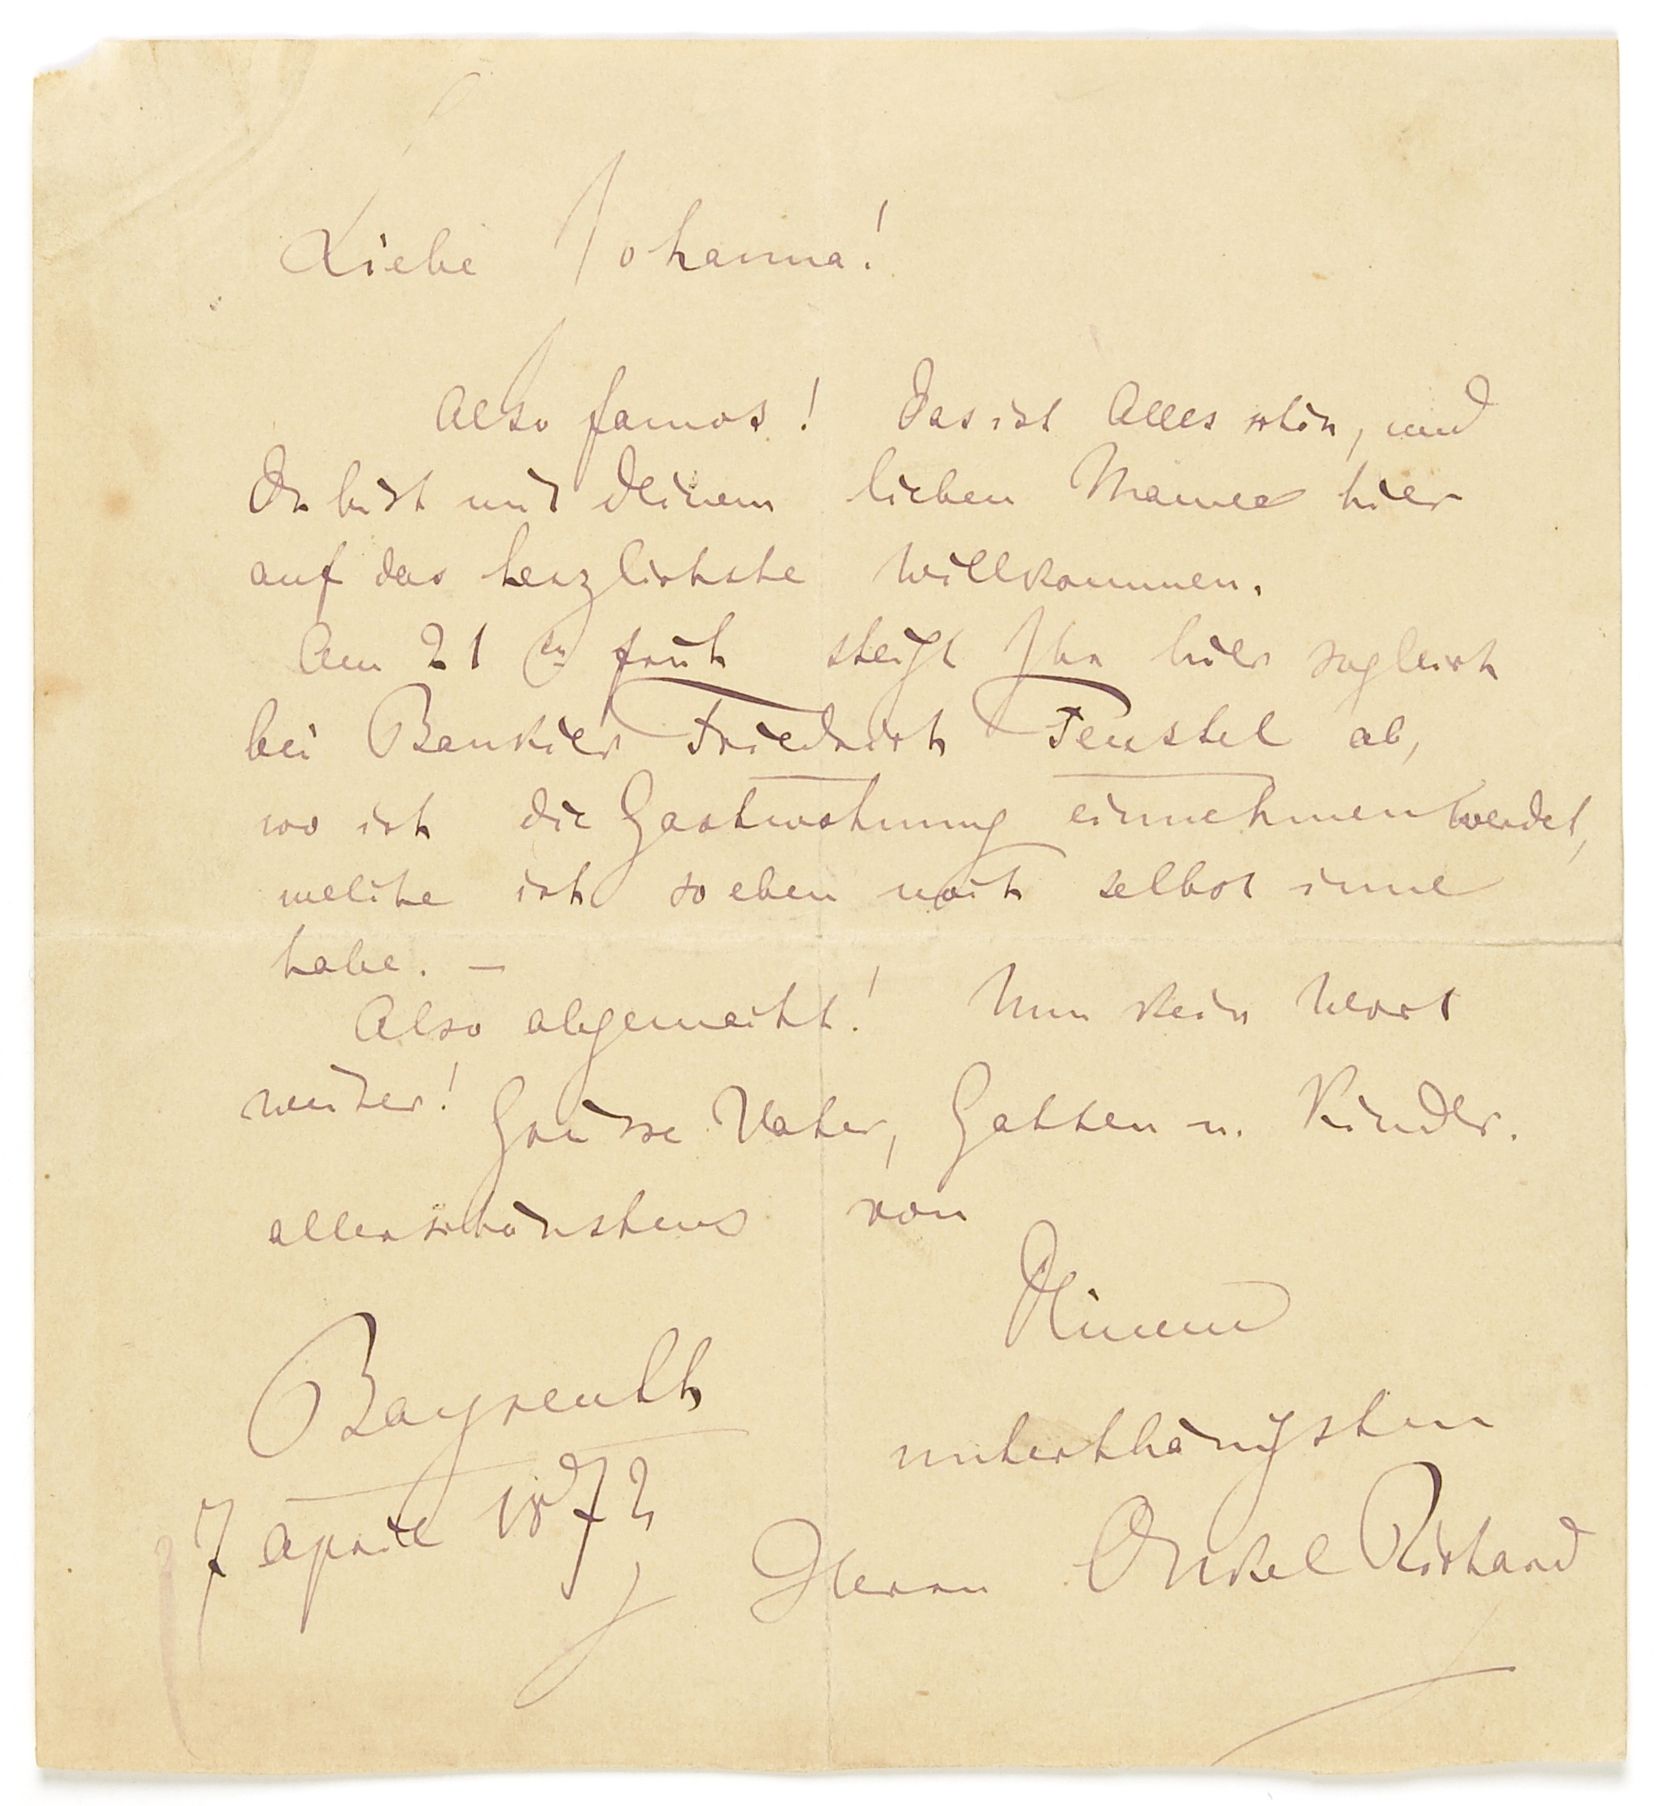 Liebe Johanna!
Also famos! Das ist Alles schön, und
Du bist mit Deinem lieben Manne hier
auf das herzlichste willkommen.
Am 21 früh steigt Ihr hier sogleich
bei Bankier Friedrich Feustel ab,
wo ich die Gastwohnung einnehmen werdet,
welche ich so eben noch selbst inne
habe. —
Also abgemacht! Nun kein Wort
weiter! Grüsse Vater, Gatten u. Kinder.
allerschönstens von
Deinem
unterthänigsten
Herrn Onkel Richard
Bayreuth
7 April 1872